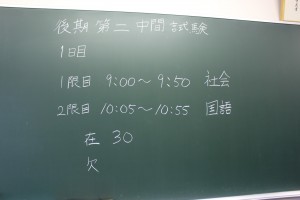 後期第二中間試験
1日目
1限目 9:00～9:50 社会
2限目 10:05～10:55 国語
在 30
欠